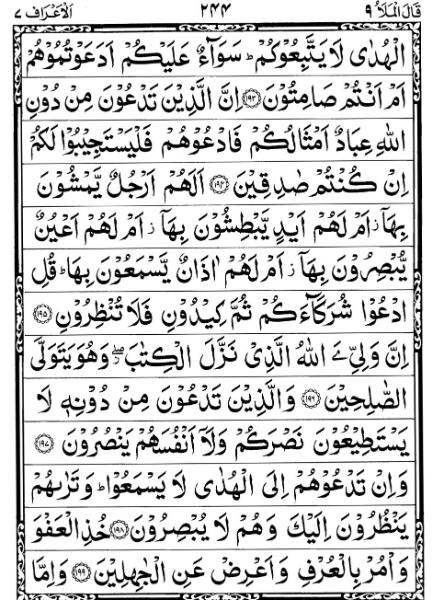 قَالَ الْمَلَاُ ٩ ٢٤٤ اَلْاَعْرَاف ٧
الْهُدٰى لَا يَتَّبِعُوْكُمْ ؕ سَوَآءٌ عَلَيْكُمْ اَدَعَوْتُمُوْهُمْ
اَمْ اَنْتُمْ صَامِتُوْنَ ﴿۱۹۳﴾ اِنَّ الَّذِيْنَ تَدْعُوْنَ مِنْ دُوْنِ
اللّٰهِ عِبَادٌ اَمْثَالُكُمْ فَادْعُوْهُمْ فَلْيَسْتَجِيْبُوْا لَكُمْ
اِنْ كُنْتُمْ صٰدِقِيْنَ ﴿۱۹۴﴾ اَلَهُمْ اَرْجُلٌ يَّمْشُوْنَ
بِهَاۤ ؗ اَمْ لَهُمْ اَيْدٍ يَّبْطِشُوْنَ بِهَاۤ ؗ اَمْ لَهُمْ اَعْيُنٌ
يُّبْصِرُوْنَ بِهَاۤ ؗ اَمْ لَهُمْ اٰذَانٌ يَّسْمَعُوْنَ بِهَا ؕ قُلِ
ادْعُوْا شُرَكَآءَكُمْ ثُمَّ كِيْدُوْنِ فَلَا تُنْظِرُوْنِ ﴿۱۹۵﴾
اِنَّ وَلِيِّ َۧ اللّٰهُ الَّذِيْ نَزَّلَ الْكِتٰبَ ۖؗ وَهُوَ يَتَوَلَّى
الصّٰلِحِيْنَ ﴿۱۹۶﴾ وَالَّذِيْنَ تَدْعُوْنَ مِنْ دُوْنِهٖ لَا
يَسْتَطِيْعُوْنَ نَصْرَكُمْ وَلَاۤ اَنْفُسَهُمْ يَنْصُرُوْنَ ﴿۱۹۷﴾
وَاِنْ تَدْعُوْهُمْ اِلَى الْهُدٰى لَا يَسْمَعُوْا ؕ وَتَرٰىهُمْ
يَنْظُرُوْنَ اِلَيْكَ وَهُمْ لَا يُبْصِرُوْنَ ﴿۱۹۸﴾ خُذِ الْعَفْوَ
وَاْمُرْ بِالْعُرْفِ وَاَعْرِضْ عَنِ الْجٰهِلِيْنَ ﴿۱۹۹﴾ وَاِمَّا